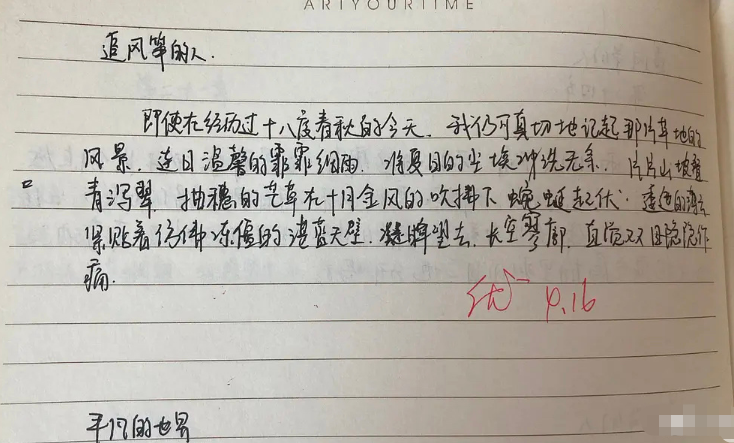 ARTYOURTIME
追风筝的人.
即使在经历过十八度春秋的今天.我仍可真切地记起那片草地的
风景.连日温馨的霏霏细雨.将夏日的尘埃冲洗无余.片片山坡叠
青泻翠.抽穗的芒草在十月金风的吹拂下蜿蜒起伏.逶迤的薄云
紧贴着仿佛冻僵的湛蓝天壁.凝眸望去.长空寥廓.直觉双目隐隐作
痛.
优- 9.16
平凡的世界